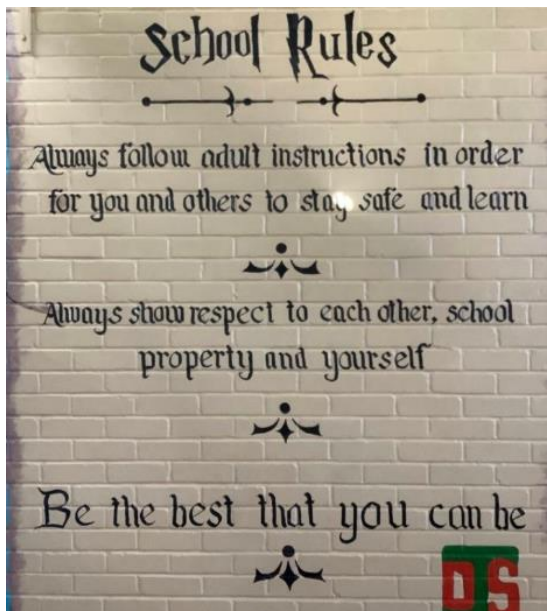 School Rules
Always follow adult instructions in order
for you and others to stay safe and learn
Always show respect to each other, school
property and yourself
Be the best that you can be
DTS